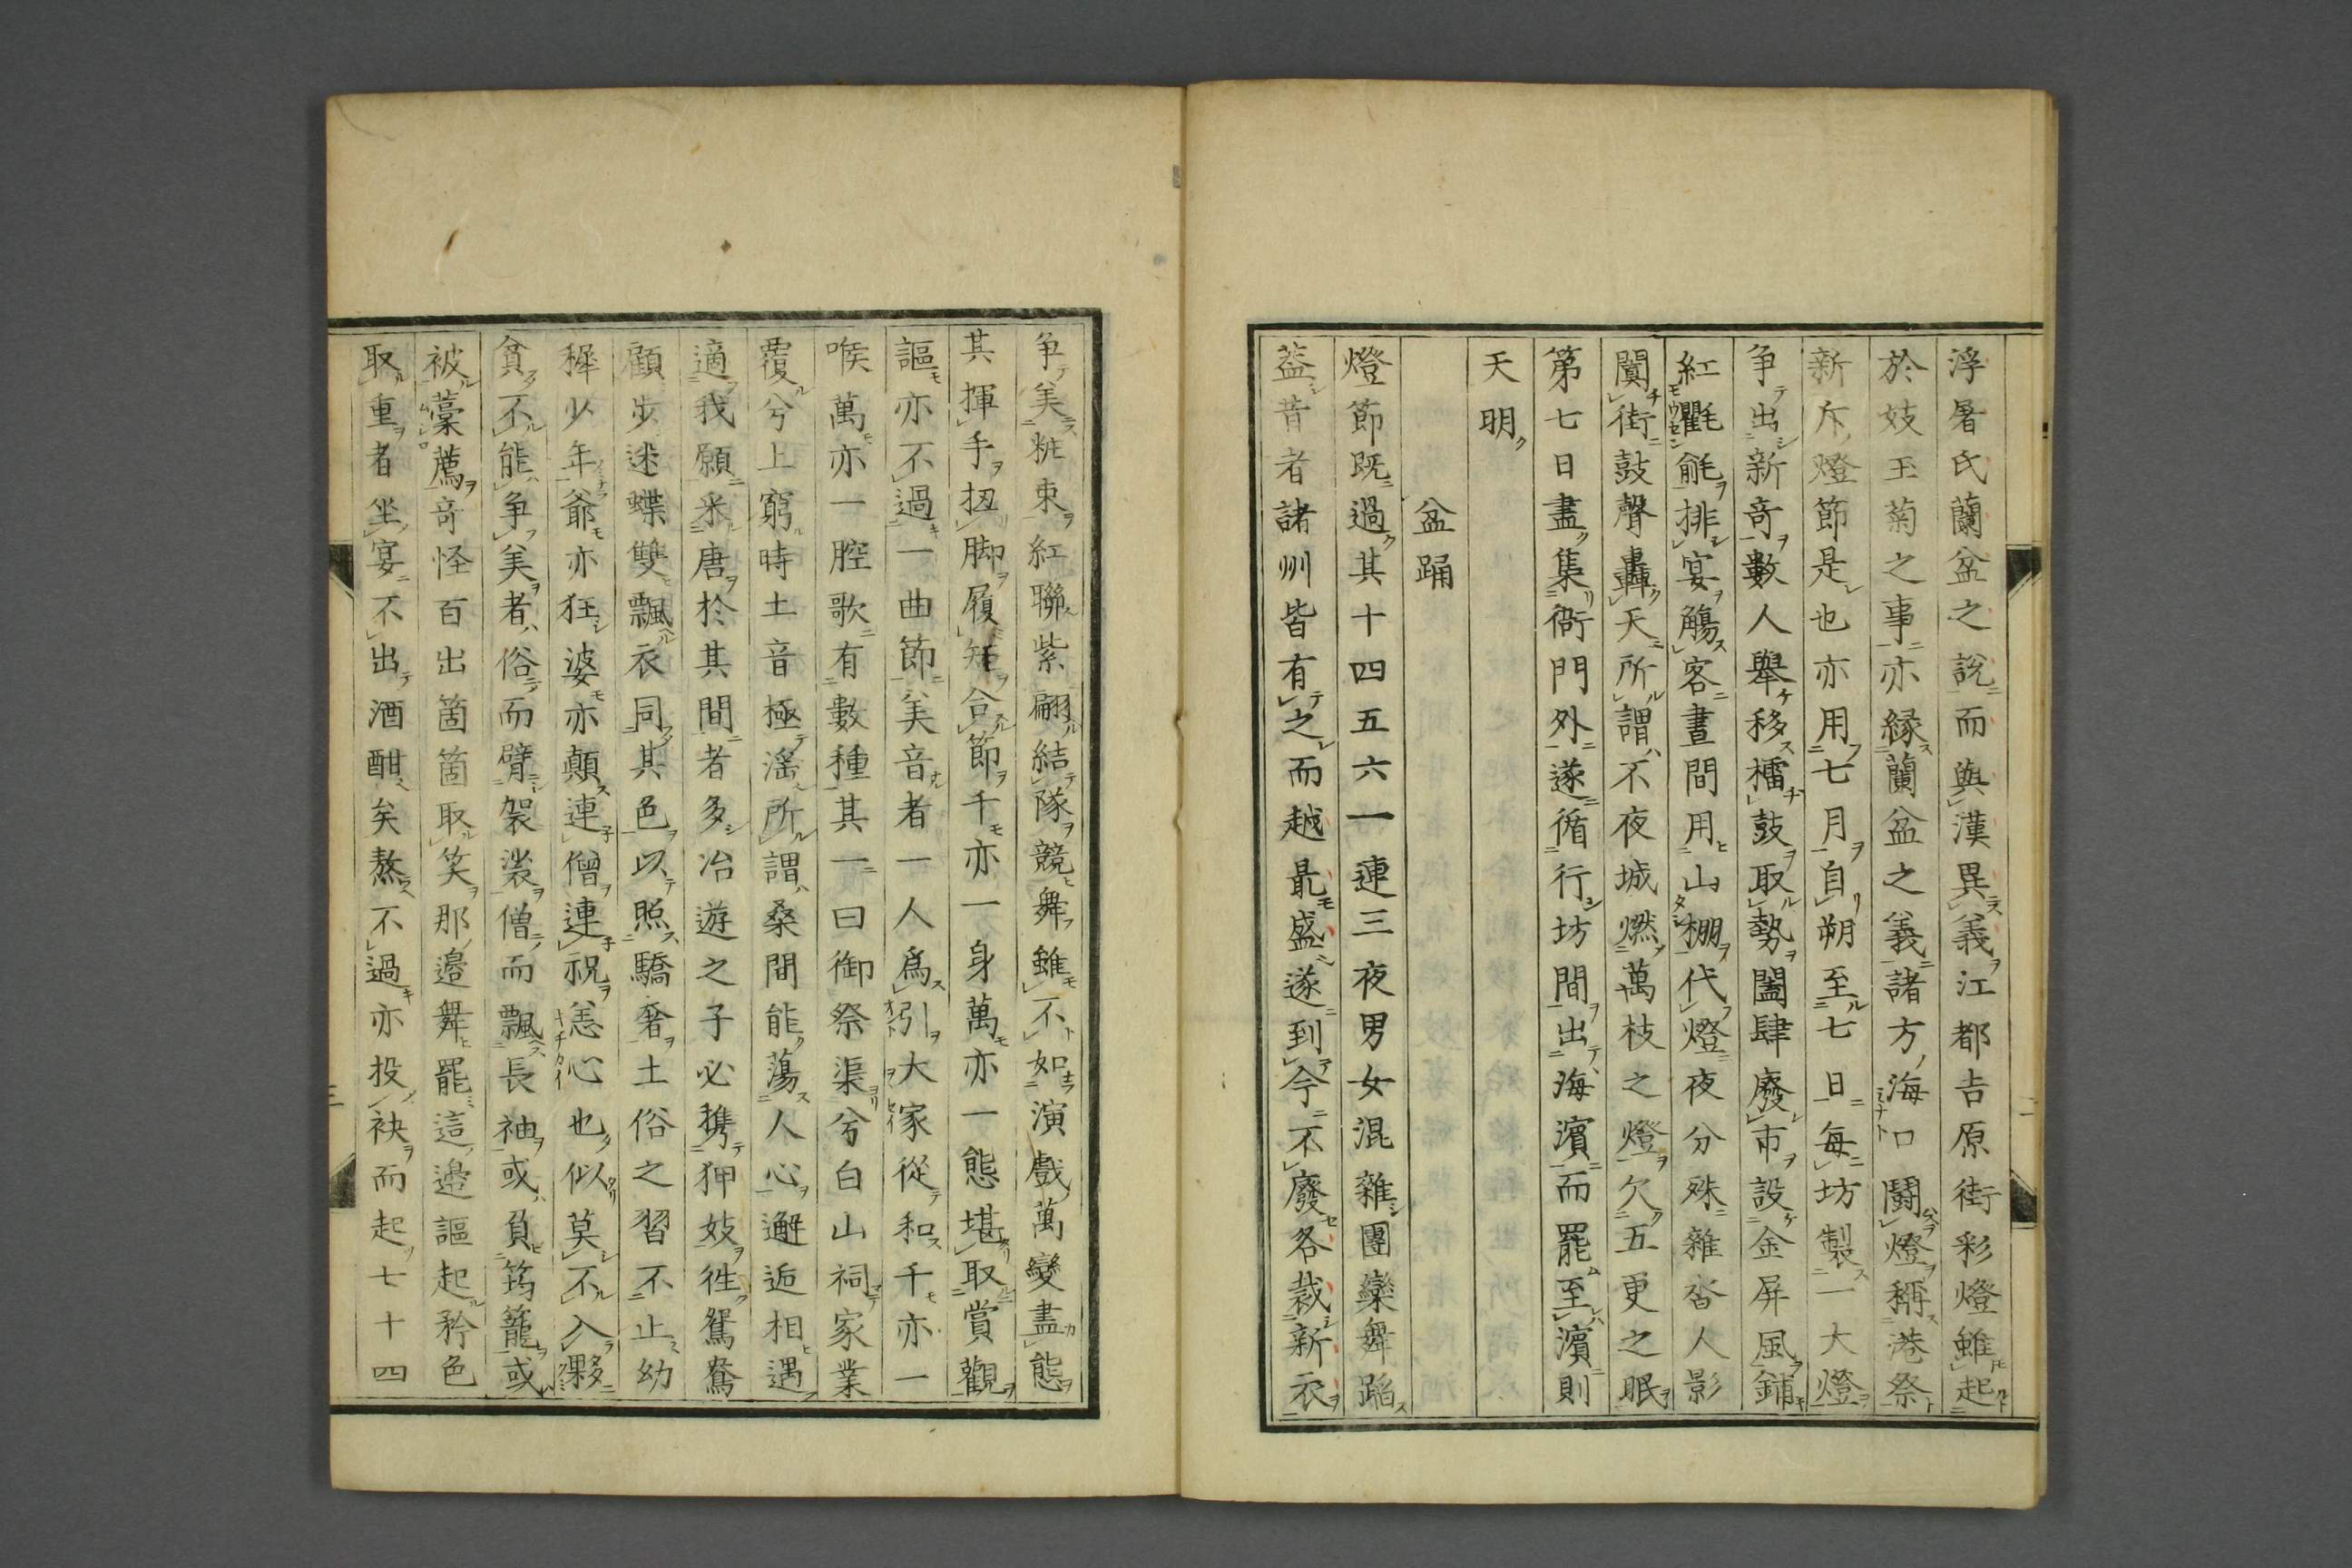 浮屠氏蘭盆之說而與漢異義江都吉原街彩燈雖起
於妓玉菊之事亦縁蘭盆之義諸方海口鬪燈稱港祭
新斥燈節是也亦用七月自朔至七日每坊製一大燈
争出新竒數人舉移檑鼓取勢闔肆廢市設金屏風鋪
紅氍毹排宴觴客晝間用山棚代燈夜分殊雜沓人影
闐街鼓聲轟天所謂不夜城燃萬枝之燈欠五更之眠
第七日盡集衙門外遂循行坊間出海濱而罷至濱則
天明
盆踊
燈節既過其十四五六一連三夜男女混雜團欒舞蹈
葢昔者諸州皆有之而越最盛遂到今不廢各裁新衣
争美粧束紅聯紫翩結隊競舞雖不如演戲萬變盡態
其揮手扨脚履矩合節千亦一身萬亦一態堪取賞觀
謳亦不過一曲節美音者一人爲引大家從和千亦一
喉萬亦一腔歌有數種其一曰御祭渠兮白山祠家業
覆兮上窮時土音極滛所謂桑間能蕩人心邂逅相遇
適我願采唐於其間者多冶遊之子必携狎妓徃鴛鴦
顧步迷蝶雙飄衣同其色以照驕奢土俗之習不止幼
穉少年爺亦狂婆亦顛連僧連祝恙心也似莫不入夥
貧不能争美者俗而臂袈裟僧而飄長袖或負筠籠或
被藁薦竒怪百出箇箇取笑那邉舞罷這邉謳起矜色
取重者坐宴不出酒酣矣熬不過亦投袂而起七十四